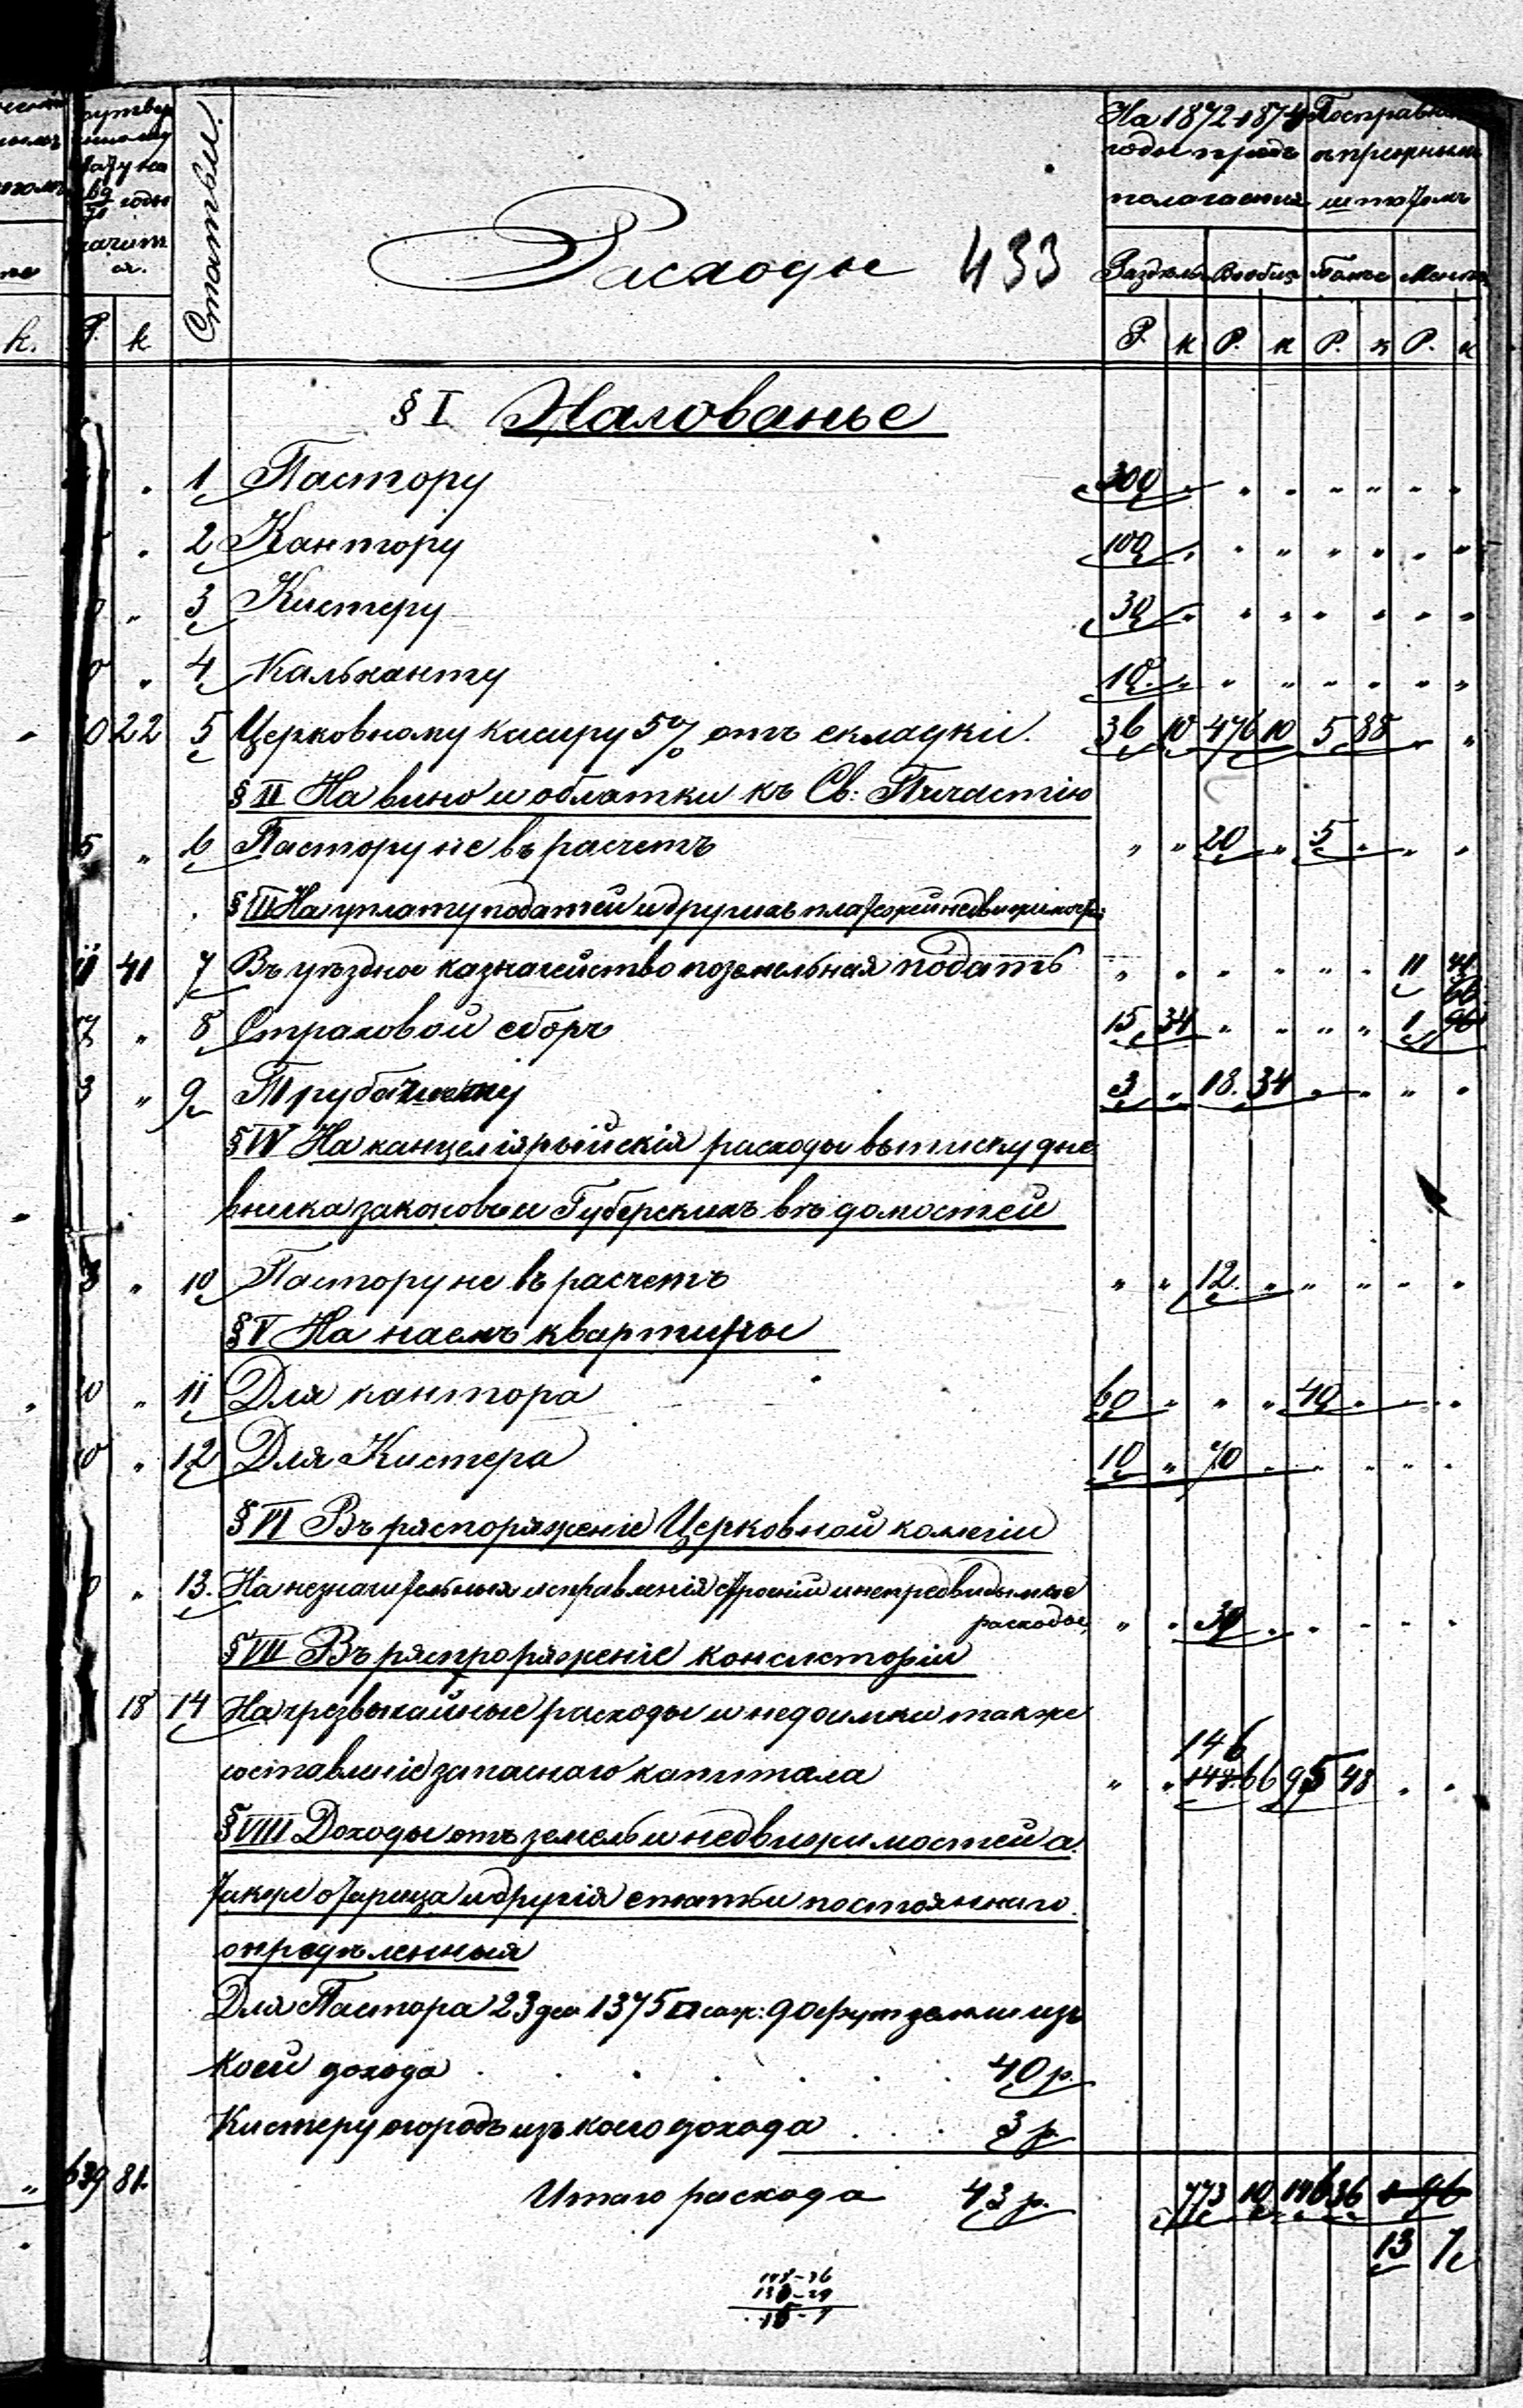 На 1872-1874 По сравненію
годы предъ съ прежнимъ
полагается штатомъ
Статьи.
Расходы 433
Раздѣльно Вообще Болѣе Менѣе
к. Р. к Р. к Р. к Р. к Р. к
§ I Жалованье
" 1 Пастору 300 " " " " " " "
" 2 Кантору 100 " " " " " " "
" 3 Кистеру 30 " " " " " " "
" 4 Кальканту 10 " " " " " " "
22 5 Церковному касиру 5% отъ складки. 36 10 476 10 5 88 " "
§ II На вино и облатки къ Св: Причастію
5 " 6 Пастору не въ расчетъ " " 20 " 5 " " "
§ III На уплату податей и другихъ платежей недвижимости
11 41 7 Въ уѣздное казначейство поземельная подать " " " " " " 11 41
66
7 " 8 Страховой сборъ 15 34 " " " " 1 96
3 " 9 Трубочисту 3 " 18. 34 " " " "
§ IV На канцелярійскія расходы выписку дне
вника законовъ и Губерскихъ вѣдомостей
3 " 10 Пастору не въ расчетъ " " 12. " " " " "
§ V На наемъ квартиры
" 11 Для кантора 60 " " " 40 " " "
" 12 Для Кистера 10 " 70 " " " " "
§ VI Въ распоряженіе Церковной колегіи
" 13. На незначительныя исправленія строеній и непредвидимые
расходы " " 30 " " " " "
§ VII Въ распроряженіе консисторіи
18 14 На чрезвычайные расходы и недоимки также
146
составленіе запаснаго капитала " " 148 66 95 48 " "
§ VIII Доходы отъ земель и недвижимостей а
также и другія статьи постояннаго
опредѣленныя
Для Пастора 23 дес 1375 □ саж: 90 фут земли изъ
коей дохода . . . . . . 40 р.
Кистеру огородъ изъ коего дохода . . . 3 р.
" 639 81. Итого расхода 43 р. 773 10 146 36 1 96
13 7
148-36
15-7